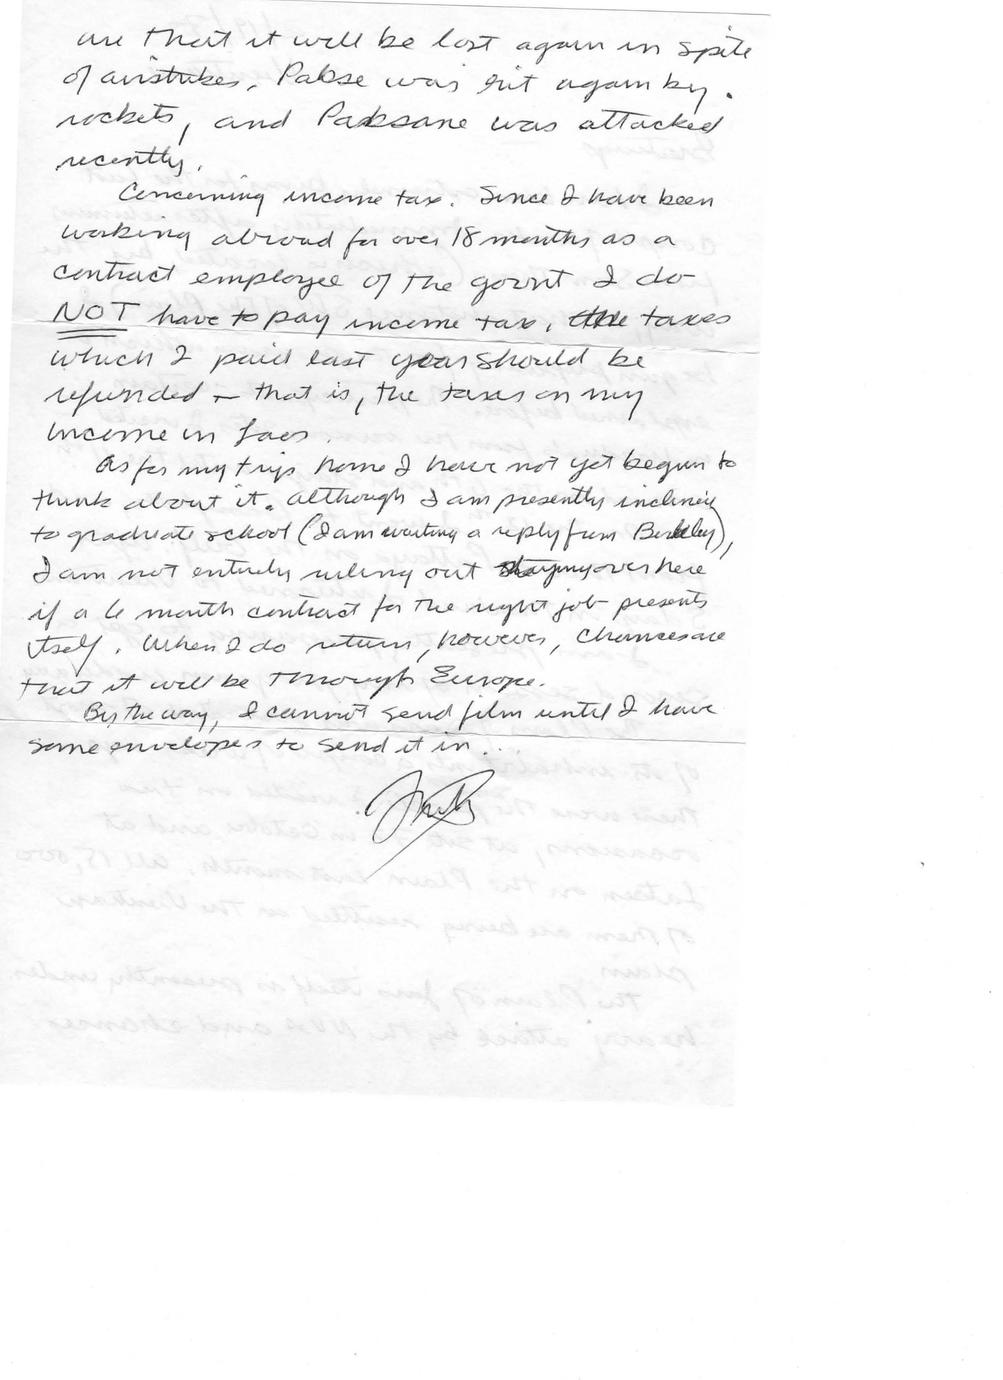 are that it will be lost again in spite
of airstrikes. Pakse was hit again by
rockets, and Paksane was attacked
recently.
Concerning income tax. Since I have been
working abroad for over 18 months as a
contract employee of the govnt I do
NOT have to pay income tax, the taxes
which I paid last year should be
refunded – that is, the taxes on my
income in Laos.
As for my trip home I have not yet begun to
think about it. although I am presently inclined
to graduate school (I am waiting a reply from Berkley),
I am not entirely ruling out staying over here
if a 6 month contract for the right job presents
itself. When I do return, however, chances are
that it will be through Europe.
By the way, I cannot send film until I have
some envelopes to send it in...